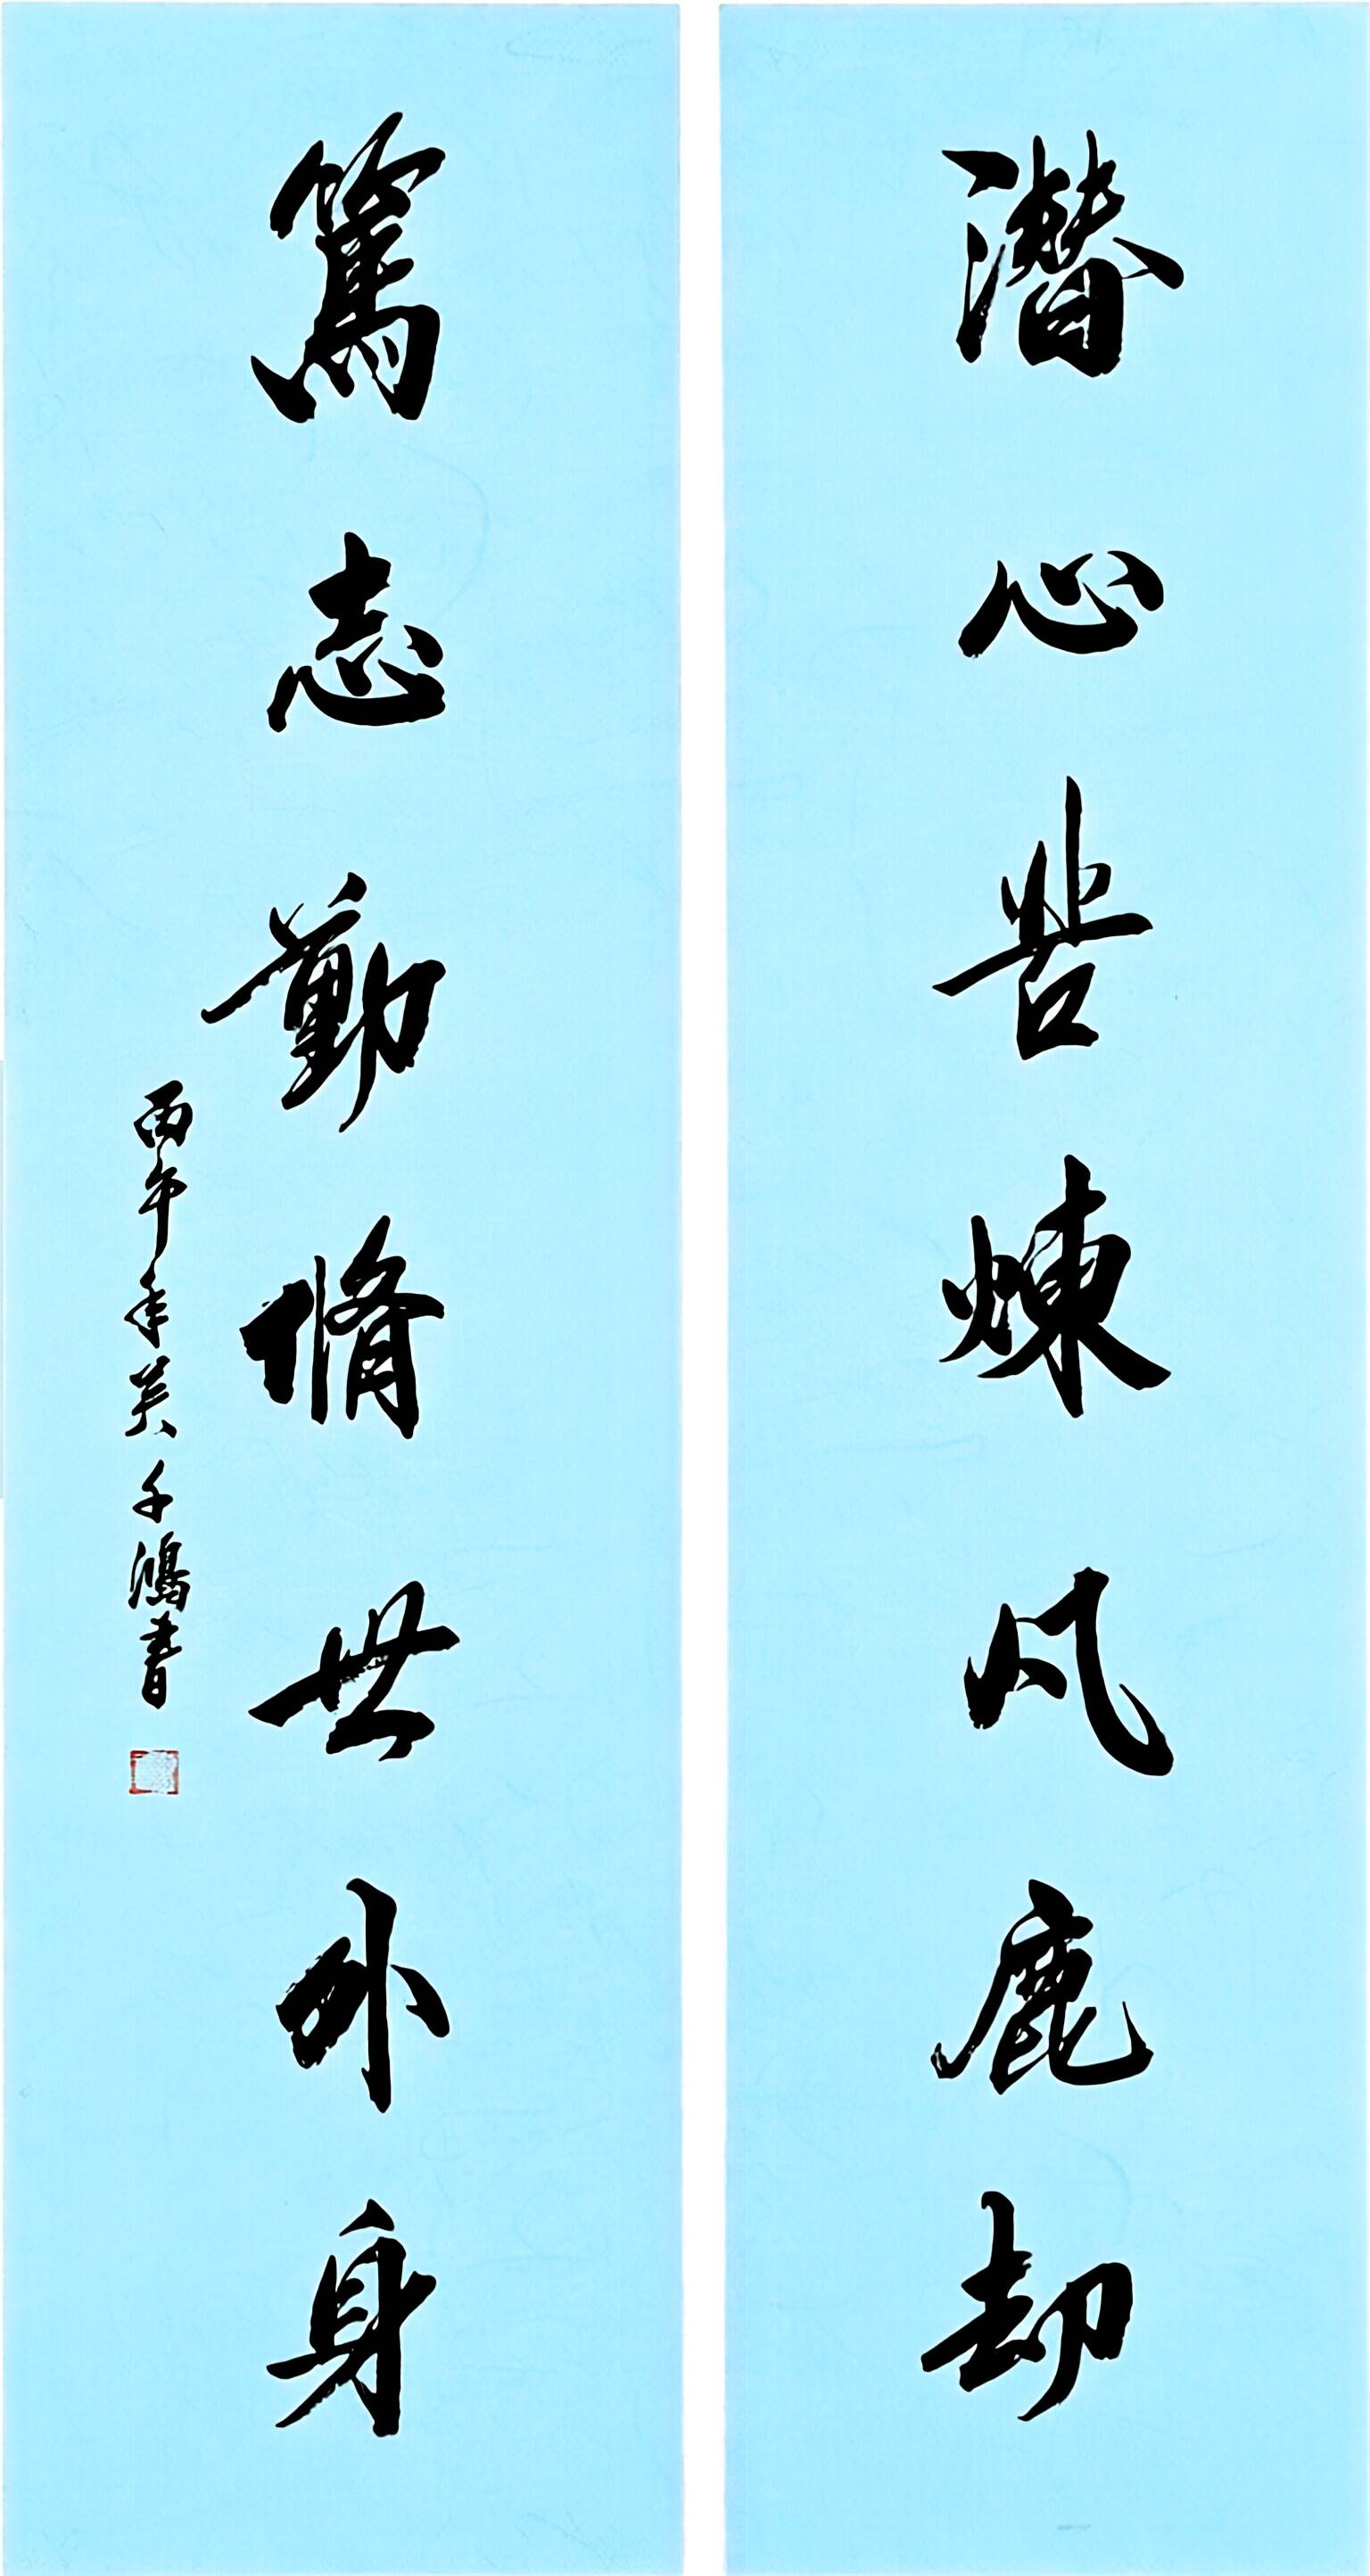 潛心苦煉风鹿劫
篤志勤脩世外身
丙午年关千鴻書